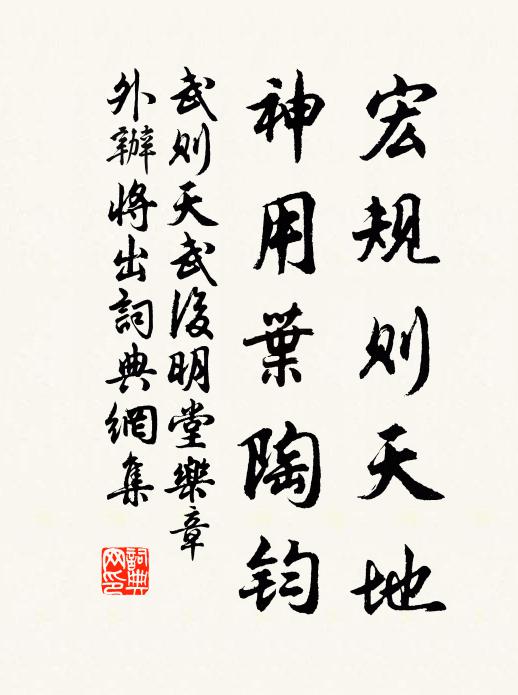 宏規則天地
神用葉陶鈞
武則天武後明堂樂章
外辦將出詞典網集
詞典网印